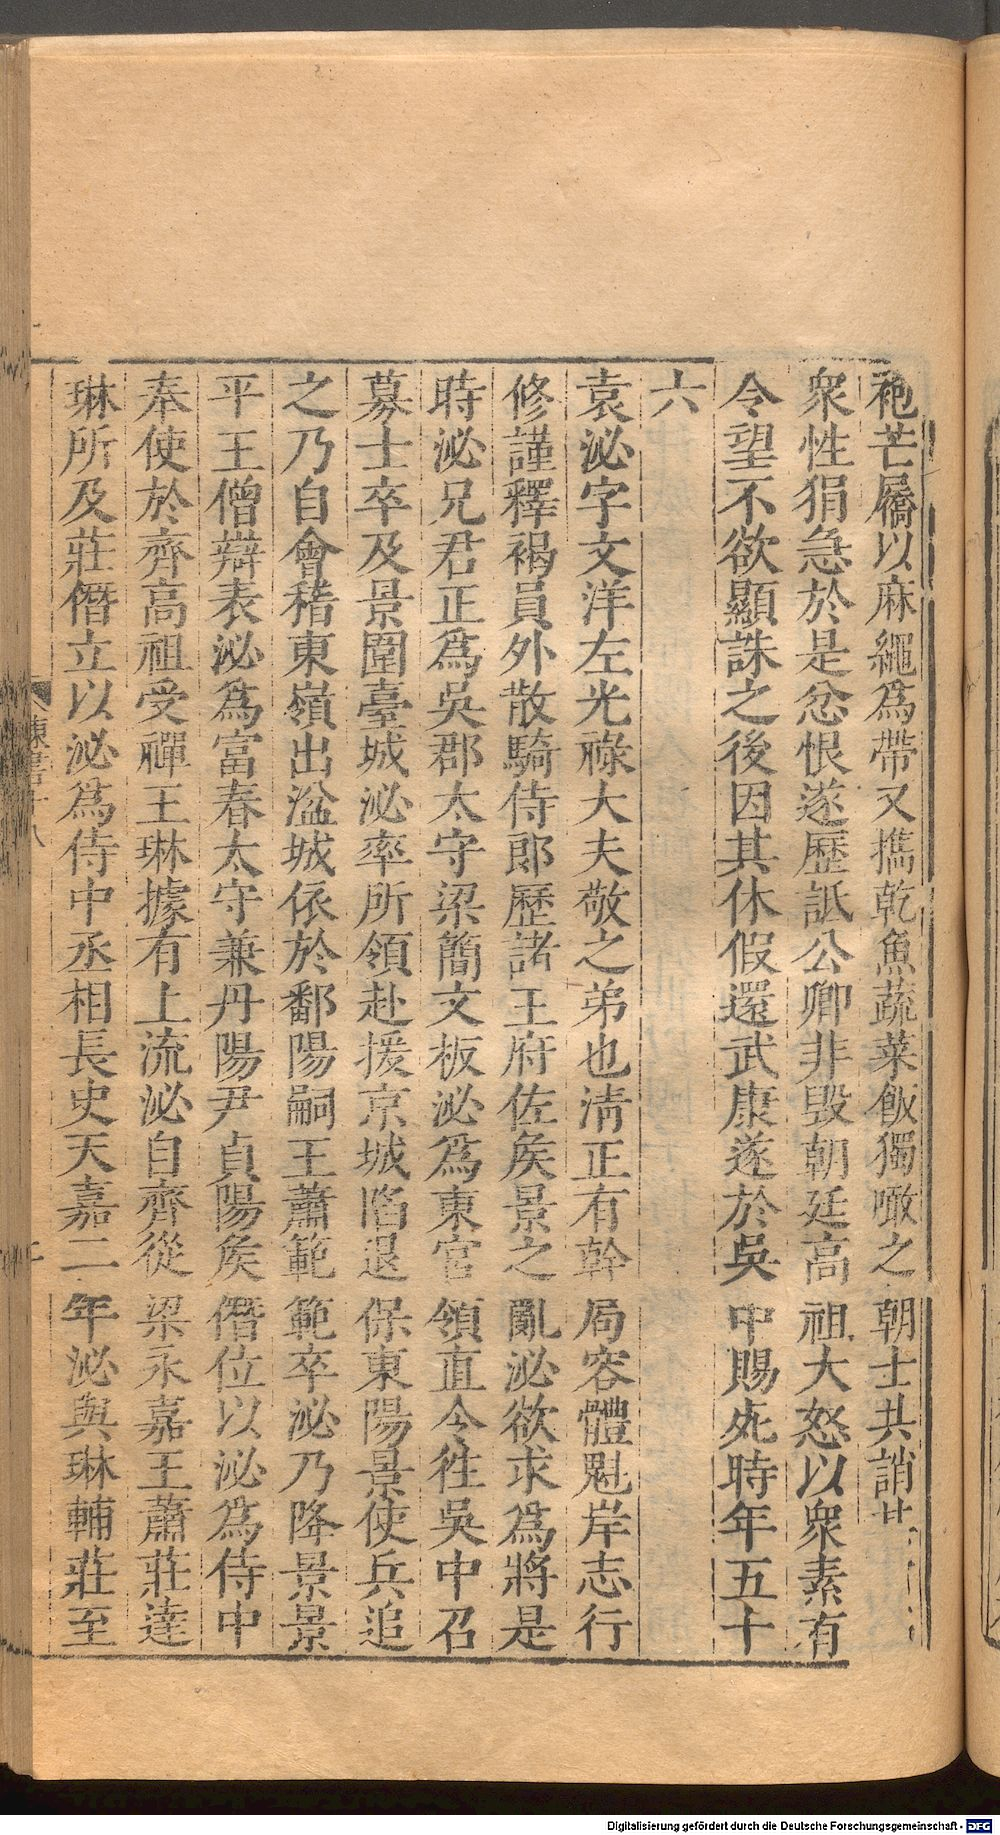 袍芒屩以麻繩爲帶又攜乾魚蔬菜飯獨噉之朝士共誚
衆性狷急於是忿恨遂歷詆公卿非毀朝廷高祖大怒以衆素有
令望不欲顯誅之後因其休假還武康遂於吳中賜死時年五十
六
袁泌字文洋左光祿大夫敬之弟也淸正有幹局容體魁岸志行
修謹釋褐員外散騎侍郎歷諸王府佐矦景之亂泌欲求爲將是
時泌兄君正爲吳郡太守梁簡文板泌爲東宮領直令徃吳中召
募士卒及景圍臺城泌率所領赴援京城陷退保東陽景使兵追
之乃自會稽東嶺出湓城依於鄱陽嗣王蕭範範卒泌乃降景景
平王僧辯表泌爲富春太守兼丹陽尹貞陽矦僭位以泌爲侍中
奉使於齊高祖受禪王琳據有上流泌自齊從梁永嘉王蕭莊達
琳所及莊僭立以泌爲侍中丞相長史天嘉二年泌與琳輔莊至
陳書十八
Digitalisierung gefördert durch die Deutsche Forschungsgemeinschaft - DFG